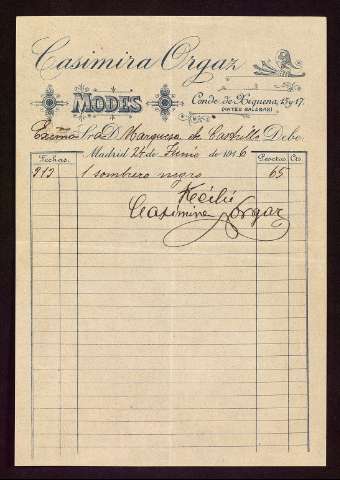 Casimira Orgaz
MODES
Conde de Xiquena, 15 y 17.
(ANTES SALESAS)
Excma Sra D. Marquesa de Castrillo Debe:
Madrid 24 de Junio de 1916
Fechas. Pesetas Cts.
913 1 sombrero negro 65
Recibí
Casimira Orgaz